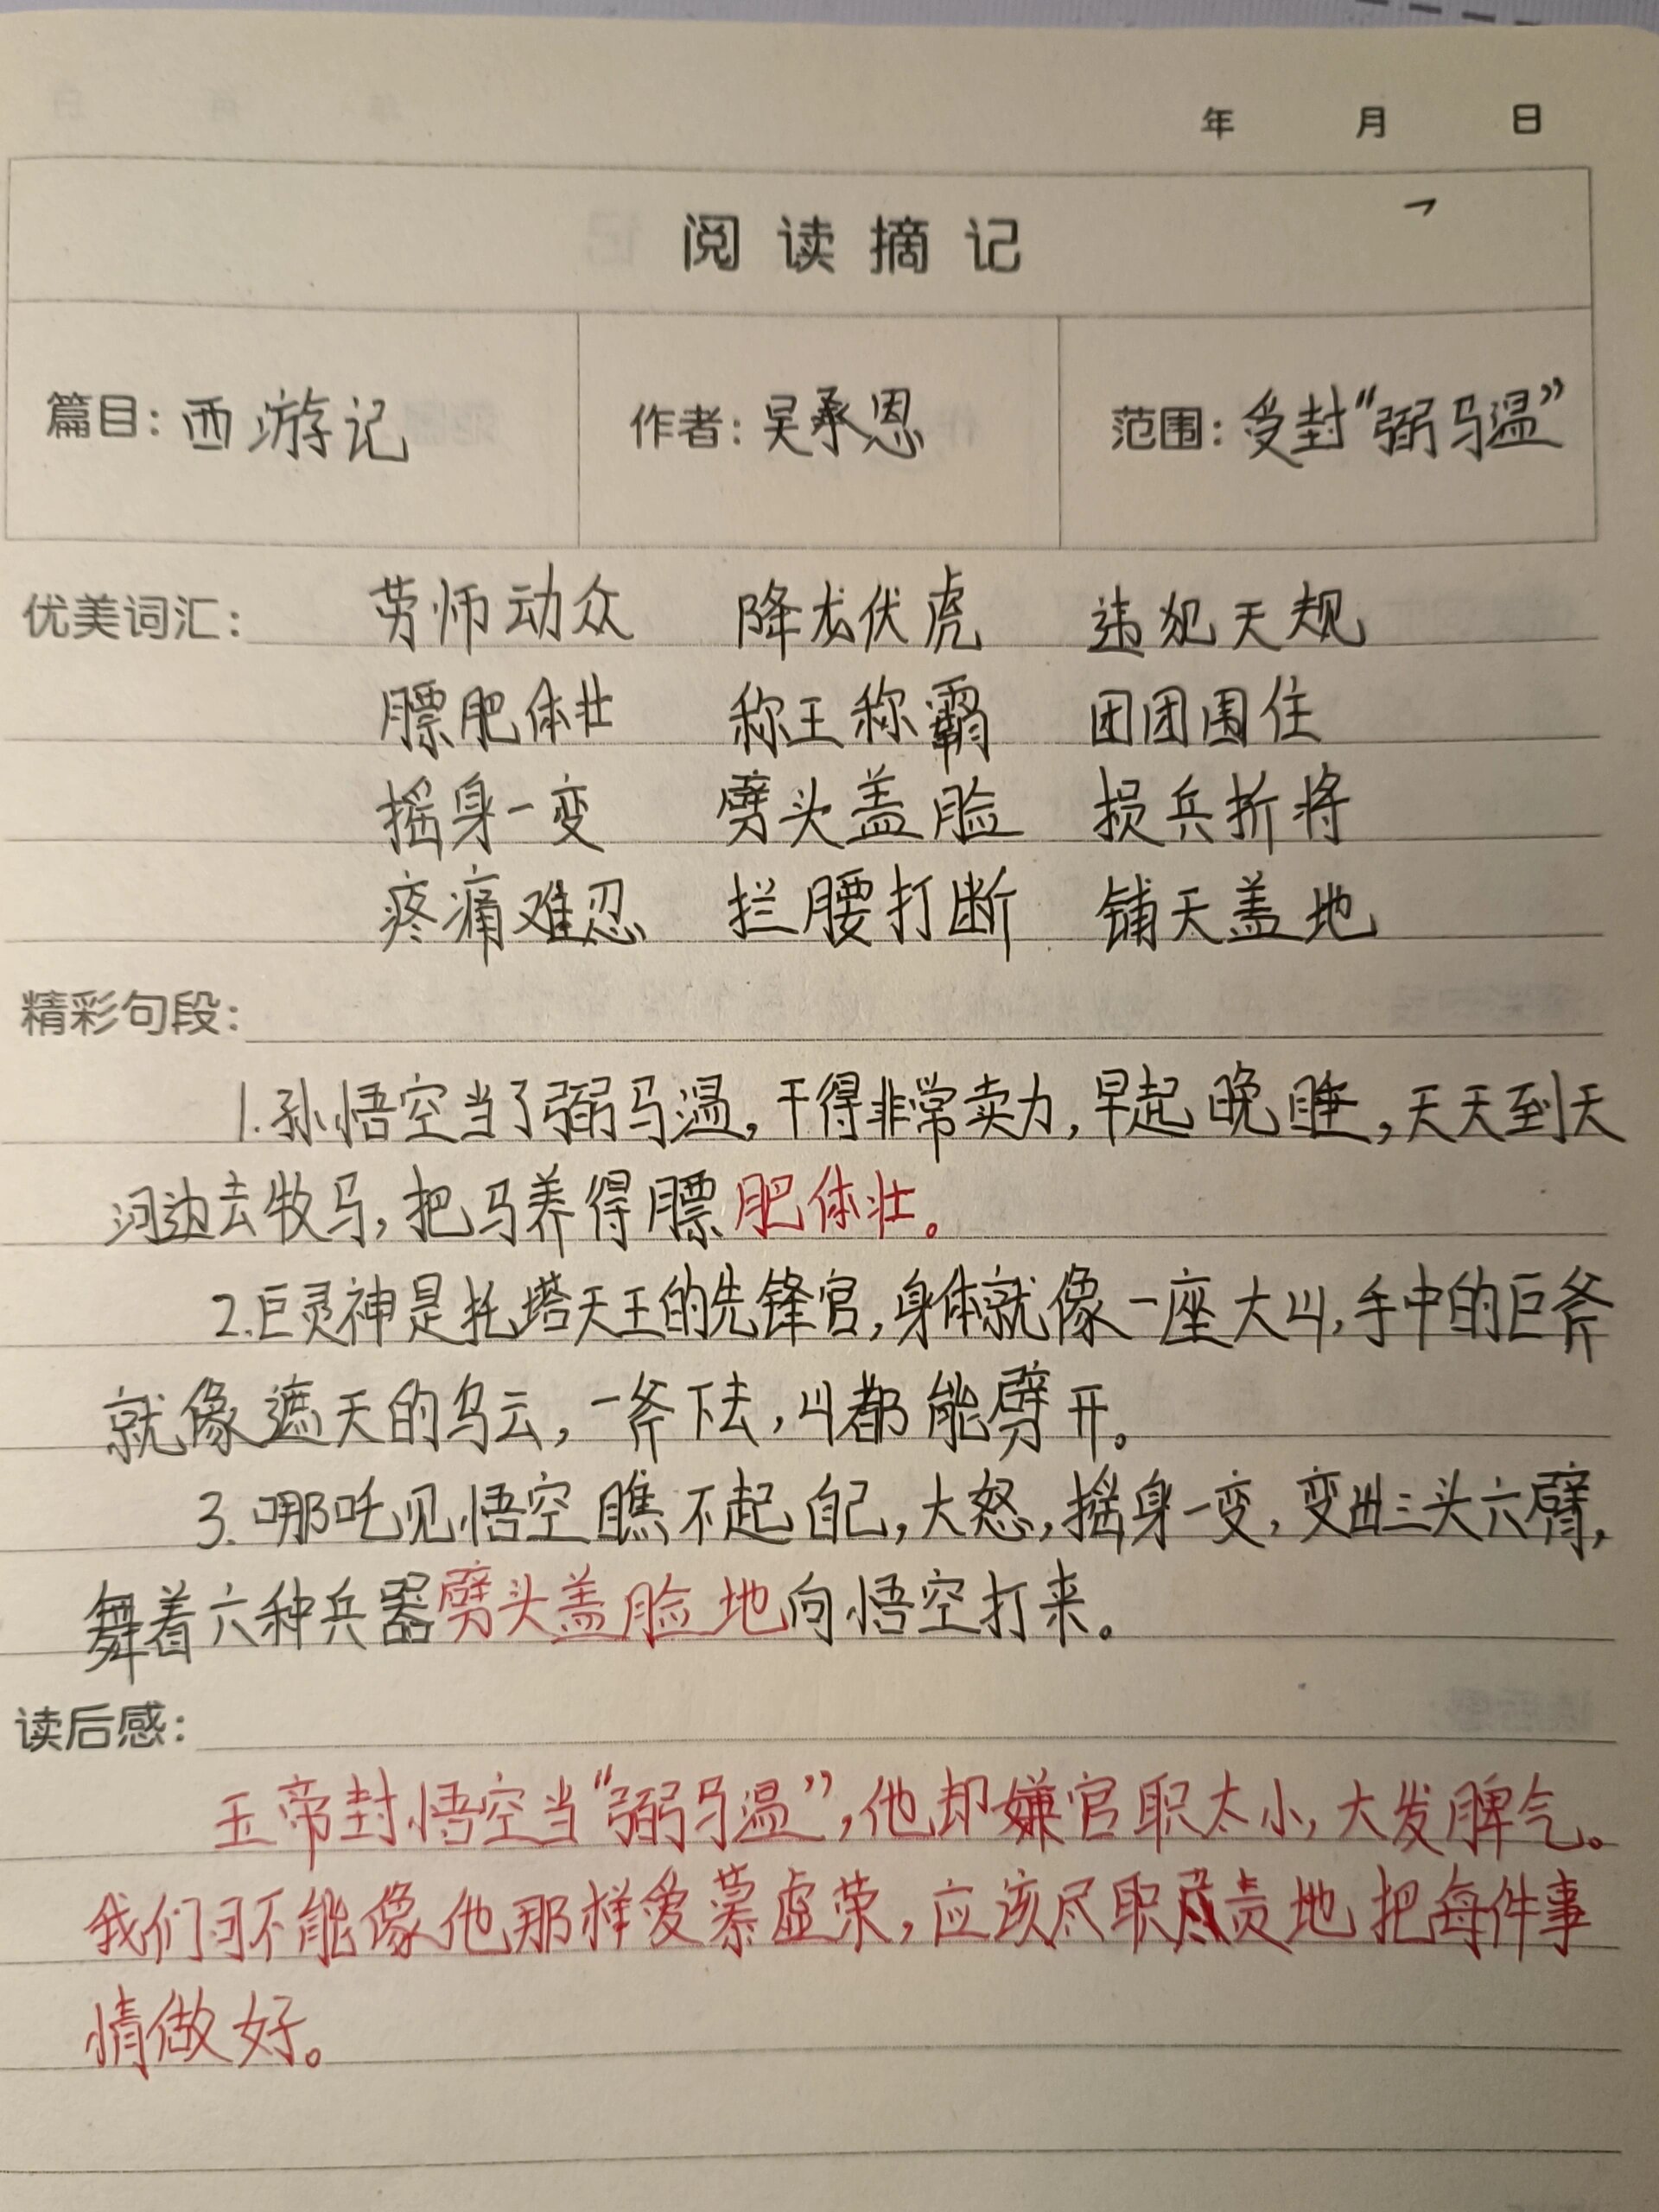 年 月 日
阅读摘记
篇目：西游记 作者：吴承恩 范围：受封“弼马温”
优美词汇： 劳师动众 降龙伏虎 违犯天规
膘肥体壮 称王称霸 团团围住
摇身一变 劈头盖脸 损兵折将
疼痛难忍 拦腰打断 铺天盖地
精彩句段：
1.孙悟空当了弼马温，干得非常卖力，早起晚睡，天天到天
河边去牧马，把马养得膘肥体壮。
2.巨灵神是托塔天王的先锋官，身体就像一座大山，手中的巨斧
就像遮天的乌云，一斧下去，山都能劈开。
3.哪吒见悟空瞧不起自己，大怒，摇身一变，变出三头六臂，
舞着六种兵器劈头盖脸地向悟空打来。
读后感：
玉帝封悟空当“弼马温”，他却嫌官职太小，大发脾气。
我们可不能像他那样爱慕虚荣，应该尽职尽责地把每件事
情做好。